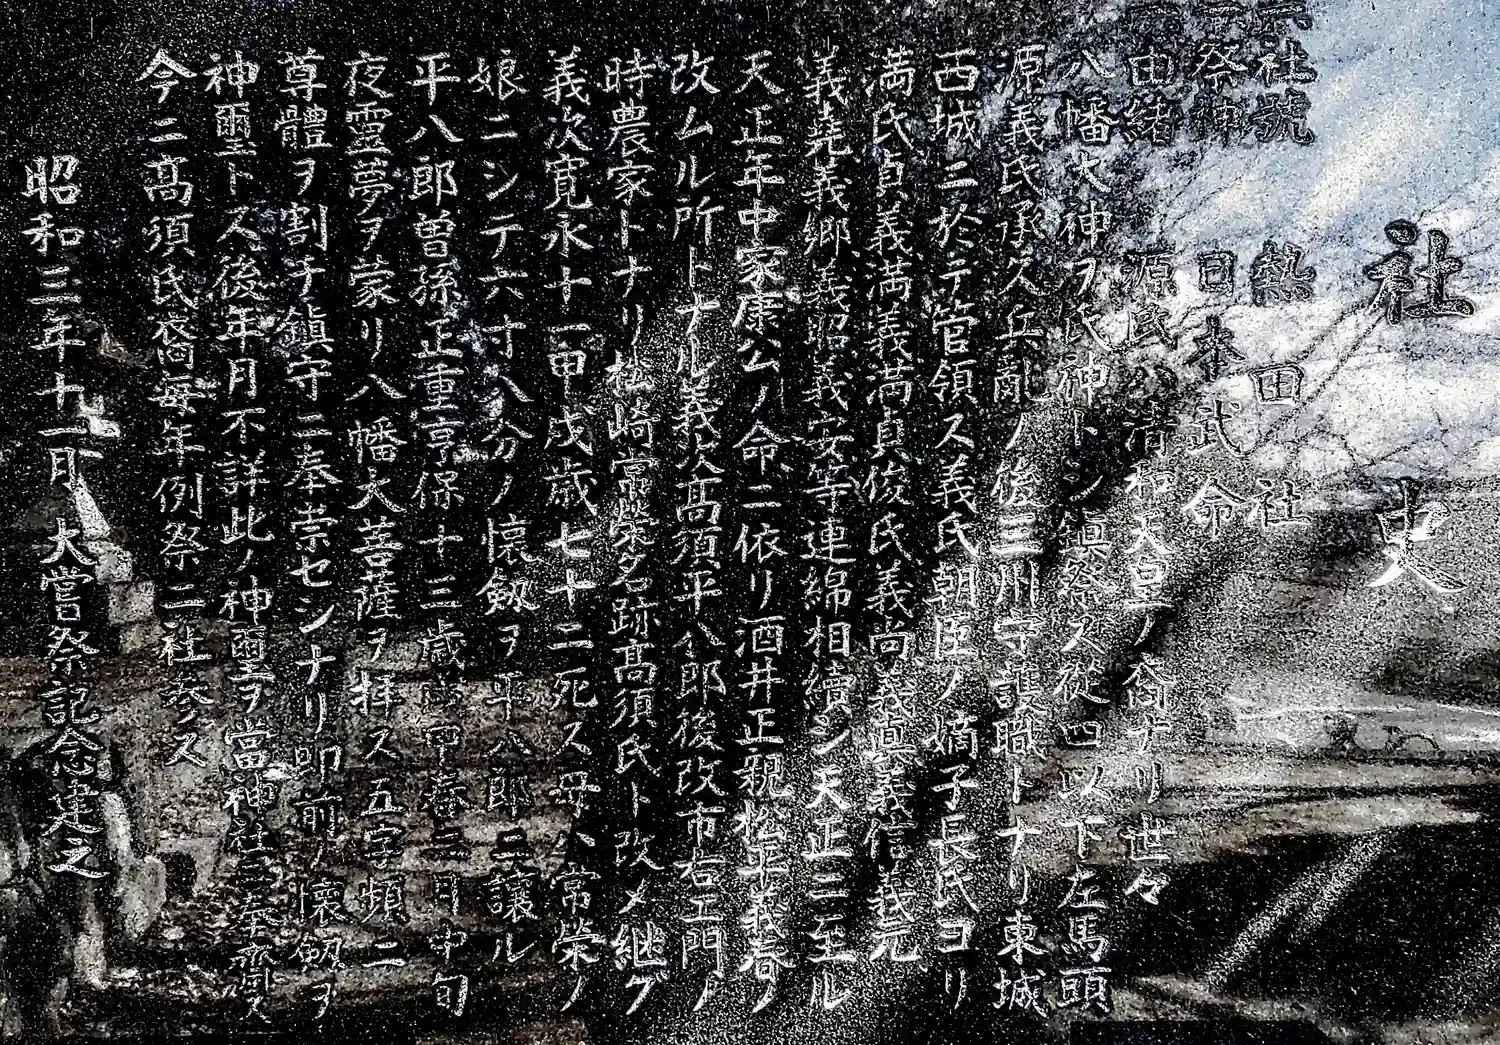 社史
一社號 熱田社
一祭神 日本武命
一由緒 源氏ハ清和天皇ノ裔ナリ世々
八幡大神ヲ氏神トシ鎮祭ス從四以下左馬頭
源義氏承久兵亂ノ後三州守護職トナリ東城
西城ニ於テ管領ス義氏朝臣ノ嫡子長氏ヨリ
満氏貞義満義満貞俊氏義尚義真義信義元
義堯義郷義昭義安等連綿相續シ天正ニ至ル
天正年中家康公ノ命ニ依リ酒井正親松平義春ノ
改ムル所トナル義次髙須平八郎後改市右エ門ノ
時農家トナリ松崎常榮名跡髙須氏ト改メ継グ
義次寛永十一甲戌歳七十二死ス母ハ常榮ノ
娘ニシテ六寸八分ノ懐劔ヲ平八郎ニ譲ル
平八郎曽孫正重享保十三歳戊申春二月中旬
夜靈夢ヲ蒙リ八幡大菩薩ヲ拝ス五字頻ニ
尊體ヲ割チ鎮守ニ奉崇セシナリ即前ノ懐劔ヲ
神璽トス後年月不詳此ノ神璽ヲ當神社ニ奉齋ス
今ニ髙須氏裔毎年例祭ニ社参ス
昭和三年十一月 大嘗祭記念建之